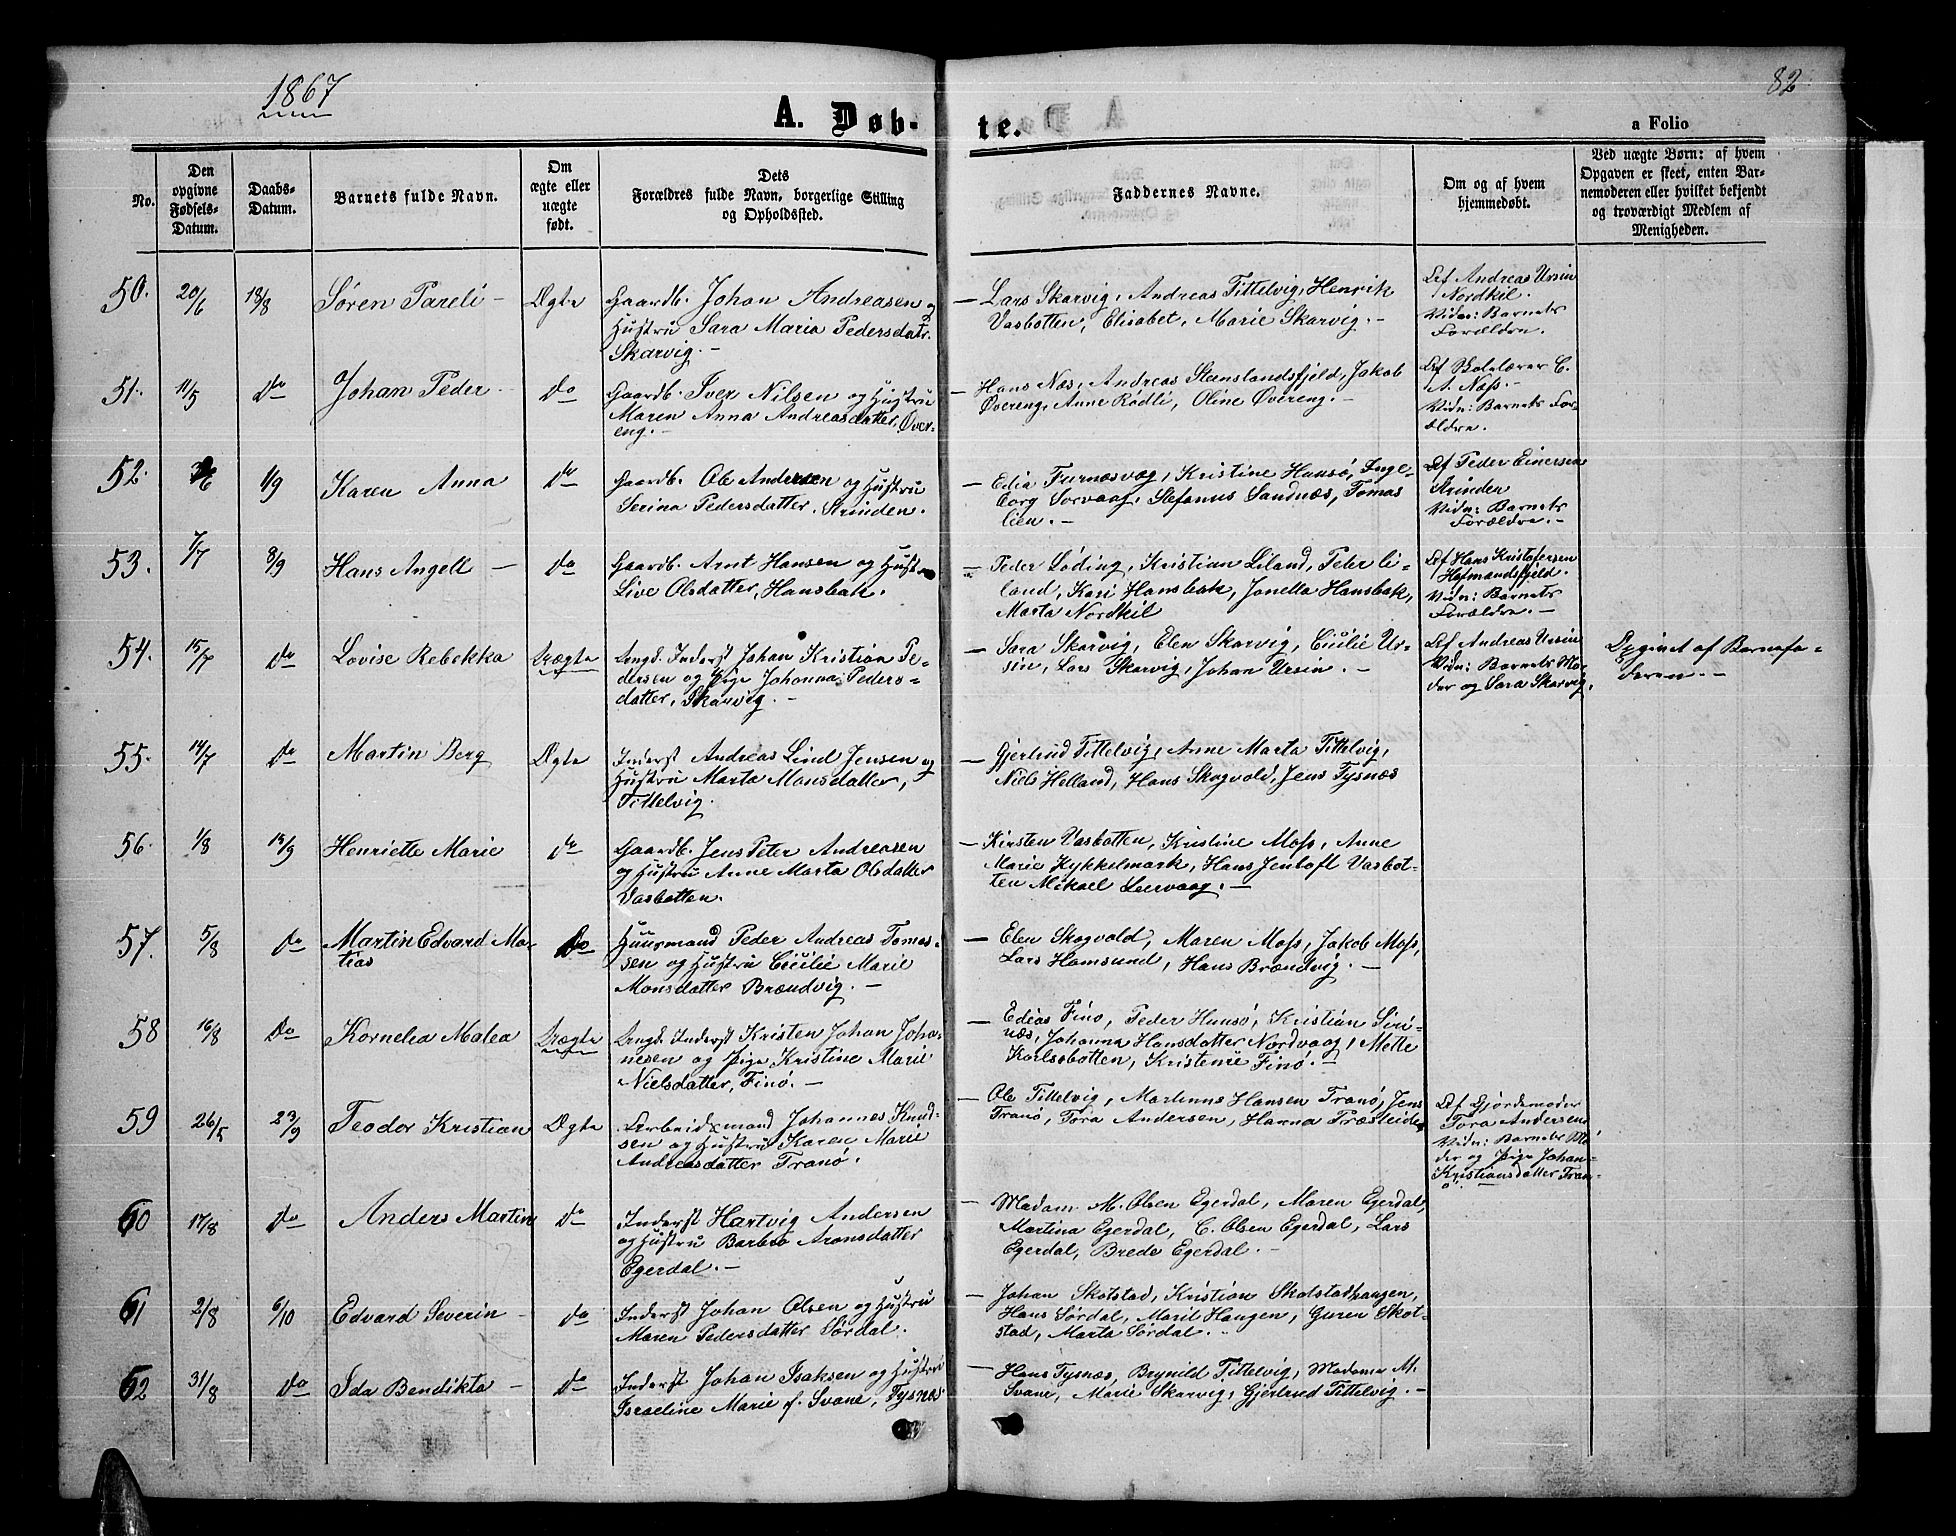 1867
82
A. Døb-
te.
a Folio
No.
Den opgivne Fødsels-Datum.
Daabs-Datum.
Barnets fulde Navn.
Om ægte eller uægte født.
Dets Forældres fulde Navn, borgerlige Stilling og Opholdssted.
Faddernes Navne.
Om og af hvem hjemmedøbt.
Ved uægte Børn: af hvem Opgaven er skeet, enten Barnemoderen eller hvilket bekjendt og troværdigt Medlem af Menigheden.
50. 20/6 18/8 Søren Pareli – Ægte
Gaardb. Johan Andreasen og
Hustru Sara Maria Pedersdatr.
Skarvig. –
– Lars Skarvig, Andreas Tittelvig, Henrik
Vasbotten, Elisabet, Marie Skarvig. –
Af Andreas Ursin
Nordkil.
Vidn: Barnets
Forældre.
51. 11/5 Do Johan Peder – Do
Gaardb. Iver Nilsen og Hustru
Maren Anna Andreasdatter, Øver-
eng. –
– Hans Næs, Andreas Steenslandsfjeld, Jakob
Øvereng, Anne Rødli, Oline Øvereng. –
Af Skolelærer C.
A. Moss. –
Vidn: Barnets For-
ældre.
52. 1/9 Karen Anna Do
Gaardb. Ole Andersen og Hustru
Serina Pedersdatter. Strinden.
– Edia Furnæsvæg, Kristine Hansø, Inge-
borg Sorvaag, Stefanus Sandnæs, Tomas
lien. –
Af Peder Einersen
Strinden
Vidn: Barnets
Forældre. –
53. 7/7 8/9 Hans Angell – Do
Gaardb. Arnt Hansen og Hustru
Live Olsdatter, Hansbak.
– Peder Løding, Kristian Liland, Peter Li-
land, Kari Hansbak, Jonetta Hansbak,
Marta Nordkil
Af Hans Kristofersen
Hofmandsfjeld.
Vidn: Barnets
Forældre. –
54. 15/7 Do Lovise Rebekka Uægte
Ungd. Inderst Johan Kristian Pe-
dersen og Pige Johanna Peders-
datter, Skarvig. –
– Sara Skarvig, Elen Skarvig, Cicilie Ur-
sin, Lars Skarvig, Johan Ursin. –
Af Andreas Ursin
Vidn: Barnets Mo-
der og Sara Skarvig.
Opgivet af Barnefa-
deren. –
55. 14/7 Do Martin Berg Ægte
Inderst Andreas Lind Jensen og
Hustru Marta Monsdatter,
Tittelvig.
– Gjertrud Tittelvig, Anne Marta Tittelvig,
Niels Helland, Hans Skogvold, Jens Tysnæs
56. 1/8 15/9 Henriette Marie Do
Gaardb. Jens Peter Andreasen
og Hustru Anne Marta Olsdatter
Vasbotten.
– Kirsten Vasbotten, Kristine Moss, Anne
Marie Kykkelmark, Hans Jentoft Vasbot-
ten Mikael Leervaag. –
57. 5/8 Do Martin Edvard Ma-
tias Do
Huusmand Peder Andreas Tomas-
sen og Hustru Cicilie Marie
Monsdatter Brændvig. –
– Elen Skogvold, Maren Moss, Jakob Moss,
Lars Hamsund, Hans Brændvig. –
58 16/8 Do Kornelia Malea Uægte
Ungd. Inderst Kristen Johan Joha-
nesen og Pige Kristine Marie
Nielsdatter, Finø. –
– Edias Finø, Peder Hansø, Kristian Siri-
næs, Johanna Hansdatter Nordvaag, Mette
Karlsbotten, Kristense Finø. –
59 26/5 23/9 Teodor Kristian Ægte
Arbeidsmand Johannes Knud-
sen og Hustru Karen Marie
Andreasdatter Tranø.
– Ole Tittelvig, Martinus Hansen Tranø, Jens
Tranø, Tora Andersen, Hanna Præsteide
Af Gjordemoder
Tora Andersen
Vidn: Barnets Mo-
der og Pige Johan-
Kristiansdatter Tran-
ø.
60 17/8 Do Anders Martin Do
Inderst Hartvig Andersen
og Hustru Barbro Aronsdatter
Egerdal. –
– Madam M. Olsen Egerdal, Maren Egerdal,
Martina Egerdal, C. Olsen Egerdal, Lars
Egerdal, Brede Egerdal. –
61 2/8 6/10 Edvard Severin – Do
Inderst Johan Olsen og Hustru
Maren Pedersdatter Sørdal.
– Johan Skotstad, Kristian Skotstadhaugen,
Hans Sørdal, Marit Haugen, Guren Skot-
stad, Marta Sørdal.
62 31/8 Do Ida Bendikta – Do
Inderst Johan Isaksen og Hustru
Israeline Marie f. Svane, Tysnæs
– Hans Tysnæs, Brynild Tittelvig, Madame M.
Svane, Marie Skarvig, Gjertrud Tittelvig. –